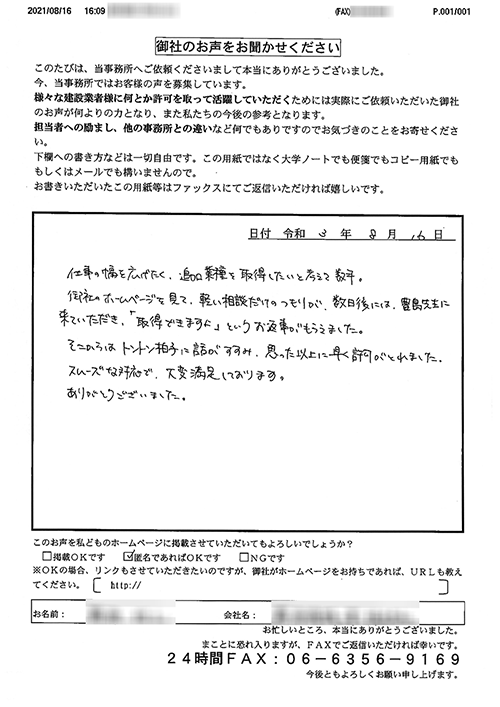 2021/08/16 16:09 (FAX) P.001/001
御社のお声をお聞かせください
このたびは、当事務所へご依頼くださいまして本当にありがとうございました。
今、当事務所ではお客様の声を募集しています。
様々な建設業者様に何とか許可を取って活躍していただくためには実際にご依頼いただいた御社
のお声が何よりの力となり、また私たちの今後の参考となります。
担当者への励まし、他の事務所との違いなど何でもありですのでお気づきのことをお寄せくださ
い。
下欄への書き方などは一切自由です。この用紙ではなく大学ノートでも便箋でもコピー用紙でも
もしくはメールでも構いませんので。
お書きいただいたこの用紙等はファックスにてご返信いただければ嬉しいです。
日付 令和 3 年 8 月 16 日
仕事の幅を広げたく、追加業種を取得したいと考えて数年。
御社のホームページを見て、軽い相談だけのつもりが、数日後には、豊島先生に
来ていただき、「取得できますよ」というお返事がもらえました。
そこからはトントン拍子に話がすすみ、思った以上に早く許可がとれました。
スムーズな対応で、大変満足しております。
ありがとうございました。
このお声を私どものホームページに掲載させていただいてもよろしいでしょうか？
□掲載ＯＫです ☑匿名であればＯＫです □ＮＧです
※ＯＫの場合、リンクもさせていただきたいのですが、御社がホームページをお持ちであれば、ＵＲＬも教え
てください。［ http:// ］
お名前： 会社名：
お忙しいところ、本当にありがとうございました。
まことに恐れ入りますが、ＦＡＸでご返信いただければ幸いです。
２４時間ＦＡＸ：０６－６３５６－９１６９
今後ともよろしくお願い申し上げます。